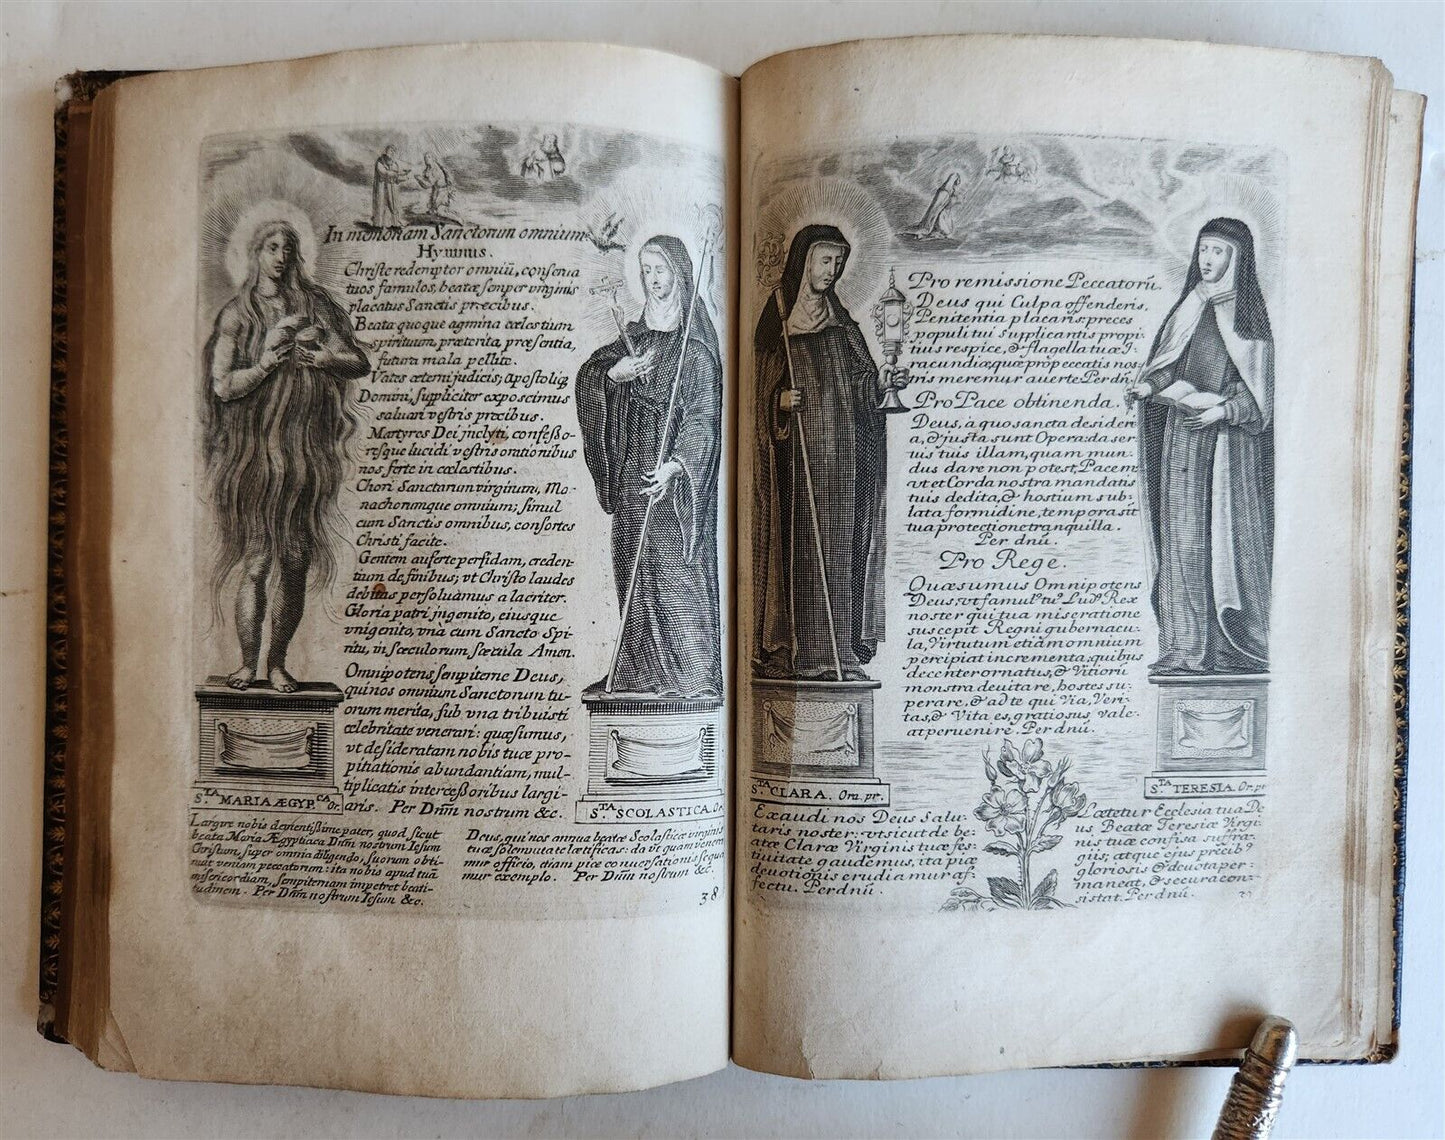 In memoriam Sanctorum omnium
Hymnus.
Christe redemptor omniũ, conserua
tuos famulos, beatæ semper virginis
placatus Sanctis præcibus.
Beata quoque agmina cœlestium
spirituum, præterita, præsentia,
futura mala pellite.
Vates æterni judicis, Apostoliq3
Domini, suppliciter exposcimus
saluari vestris præcibus.
Martyres Dei jnclyti, confeßo-
resque lucidi vestris orationibus
nos ferte in cœlestibus.
Chori Sanctarum virginum, Mo-
nachorumque omnium; simul
cum Sanctis omnibus, consortes
Christi facite.
Gentem auferte perfidam, creden-
tium de finibus; vt Christo laudes
debitas persoluamus alacriter.
Gloria patri jngenito, eiusque
vnigenito, vnà cum Sancto Spi-
ritu, in sœculorum sœcula Amen.
Omnipotens sempiterne Deus,
qui nos omnium Sanctorum tu-
orum merita, sub vna tribuisti
celebritate venerari: quæsumus,
vt desideratam nobis tuæ pro-
pitiationis abundantiam, mul-
tiplicatis interceßoribus largi-
aris. Per Dnm̃ nostrum &c.
S.TA MARIA ÆGYP.CA Or.
Largire nobis clementißime pater, quod sicut
beata Maria Ægyptiaca Dnm̃ nostrum Iesum
Christum, super omnia diligendo, suorum obti-
nuit veniam peccatorum: ita nobis apud tuã
misericordiam, sempiternam impetret beati-
tudinem. Per Dnm̃ nostrum Iesum &c.
S.TA SCOLASTICA. Or
Deus, qui nos annua beatæ Scolasticæ virginis
tuæ solemnitate lætificas: da vt quam venera
mur officio, etiam piæ conuersationis sequa
mur exemplo. Per Dnm̃ nostrum &c.
38
Pro remissione Peccatorũ.
Deus qui Culpa offenderis,
Penitentia placaris: preces
populi tui Supplicantis propi
tius respice, & flagella tuæ I-
racundiæ, quæ pro peccatis nos-
tris meremur auerte. Per dnũ.
Pro Pace obtinenda.
Deus, à quo sancta desider
a, & justa sunt Opera: da ser
uis tuis illam, quam mun-
dus dare non potest, Pacem
vt et Corda nostra mandatis
tuis dedita, & hostium sub-
lata formidine, tempora sit
tua protectione tranquilla.
Per dnũ.
Pro Rege.
Quæsumus Omnipotens
Deus, vt famul9 tu9 Lud9 Rex
noster qui tua miseratione
suscepit Regni gubernacu-
la, Virtutum etiam omnium
percipiat incrementa: quibus
decenter ornatus, & Vitiorũ
monstra deuitare, hostes su-
perare, & ad te qui Via, Veri-
tas, & Vita es, gratiosus vale-
at peruenire. Per dnũ.
S.TA CLARA. Ora. pr.
Exaudi nos Deus Salu-
taris noster: vt sicut de be-
atæ Claræ Virginis tuæ fes-
tiuitate gaudemus, ita piæ
deuotionis erudiamur af-
fectu. Per dnũ.
S.TA TERESIA. Or. pr
Lætetur Ecclesia tua De
us, Beatæ Teresiæ Virgi
nis tuæ confisa suffra-
giis; atque ejus precib9
gloriosis & deuota per-
maneat, & secura con-
sistat. Per dnũ.